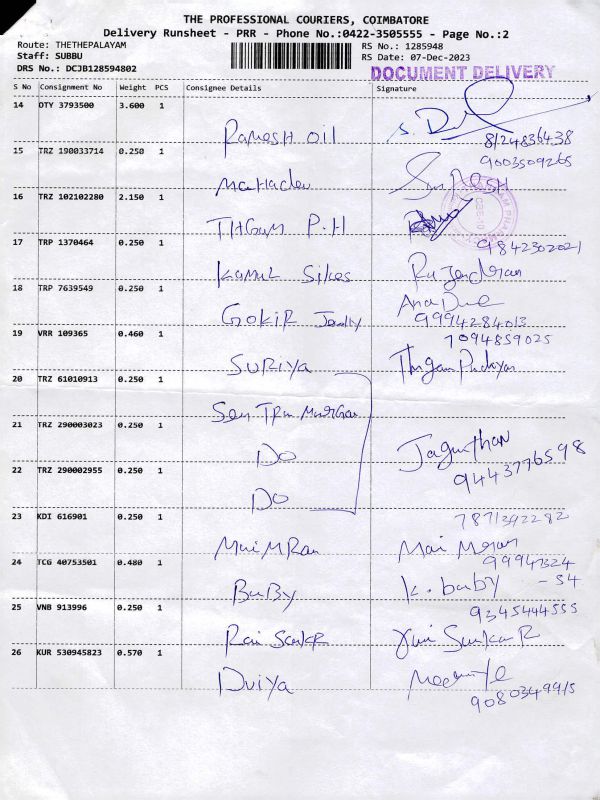 THE PROFESSIONAL COURIERS, COIMBATORE
Delivery Runsheet - PRR - Phone No.:0422-3505555 - Page No.:2
Route: THETHEPALAYAM
RS No.: 1285948
Staff: SUBBU
RS Date: 07-Dec-2023
DRS No.: DCJB128594802
DOCUMENT DELIVERY
S No Consignment No Weight PCS Consignee Details Signature
14 DTY 3793500 3.600 1
Ramesh oil
8124836438
15 TRZ 190033714 0.250 1
9003509265
Mahadev
16 TRZ 102102280 2.150 1
P.H
17 TRP 1370464 0.250 1
9842302021
Rajendran
18 TRP 7639549 0.250 1
9994284013
19 VRR 109365 0.460 1
7094859025
SURIYA
20 TRZ 61010913 0.250 1
21 TRZ 290003023 0.250 1
Do
9443776598
22 TRZ 290002955 0.250 1
Do
23 KDI 616901 0.250 1
7871392282
24 TCG 40753501 0.480 1
99947324
BuBy K. buby - 54
25 VNB 913996 0.250 1
9345444555
26 KUR 530945823 0.570 1
Dviya
9080349915